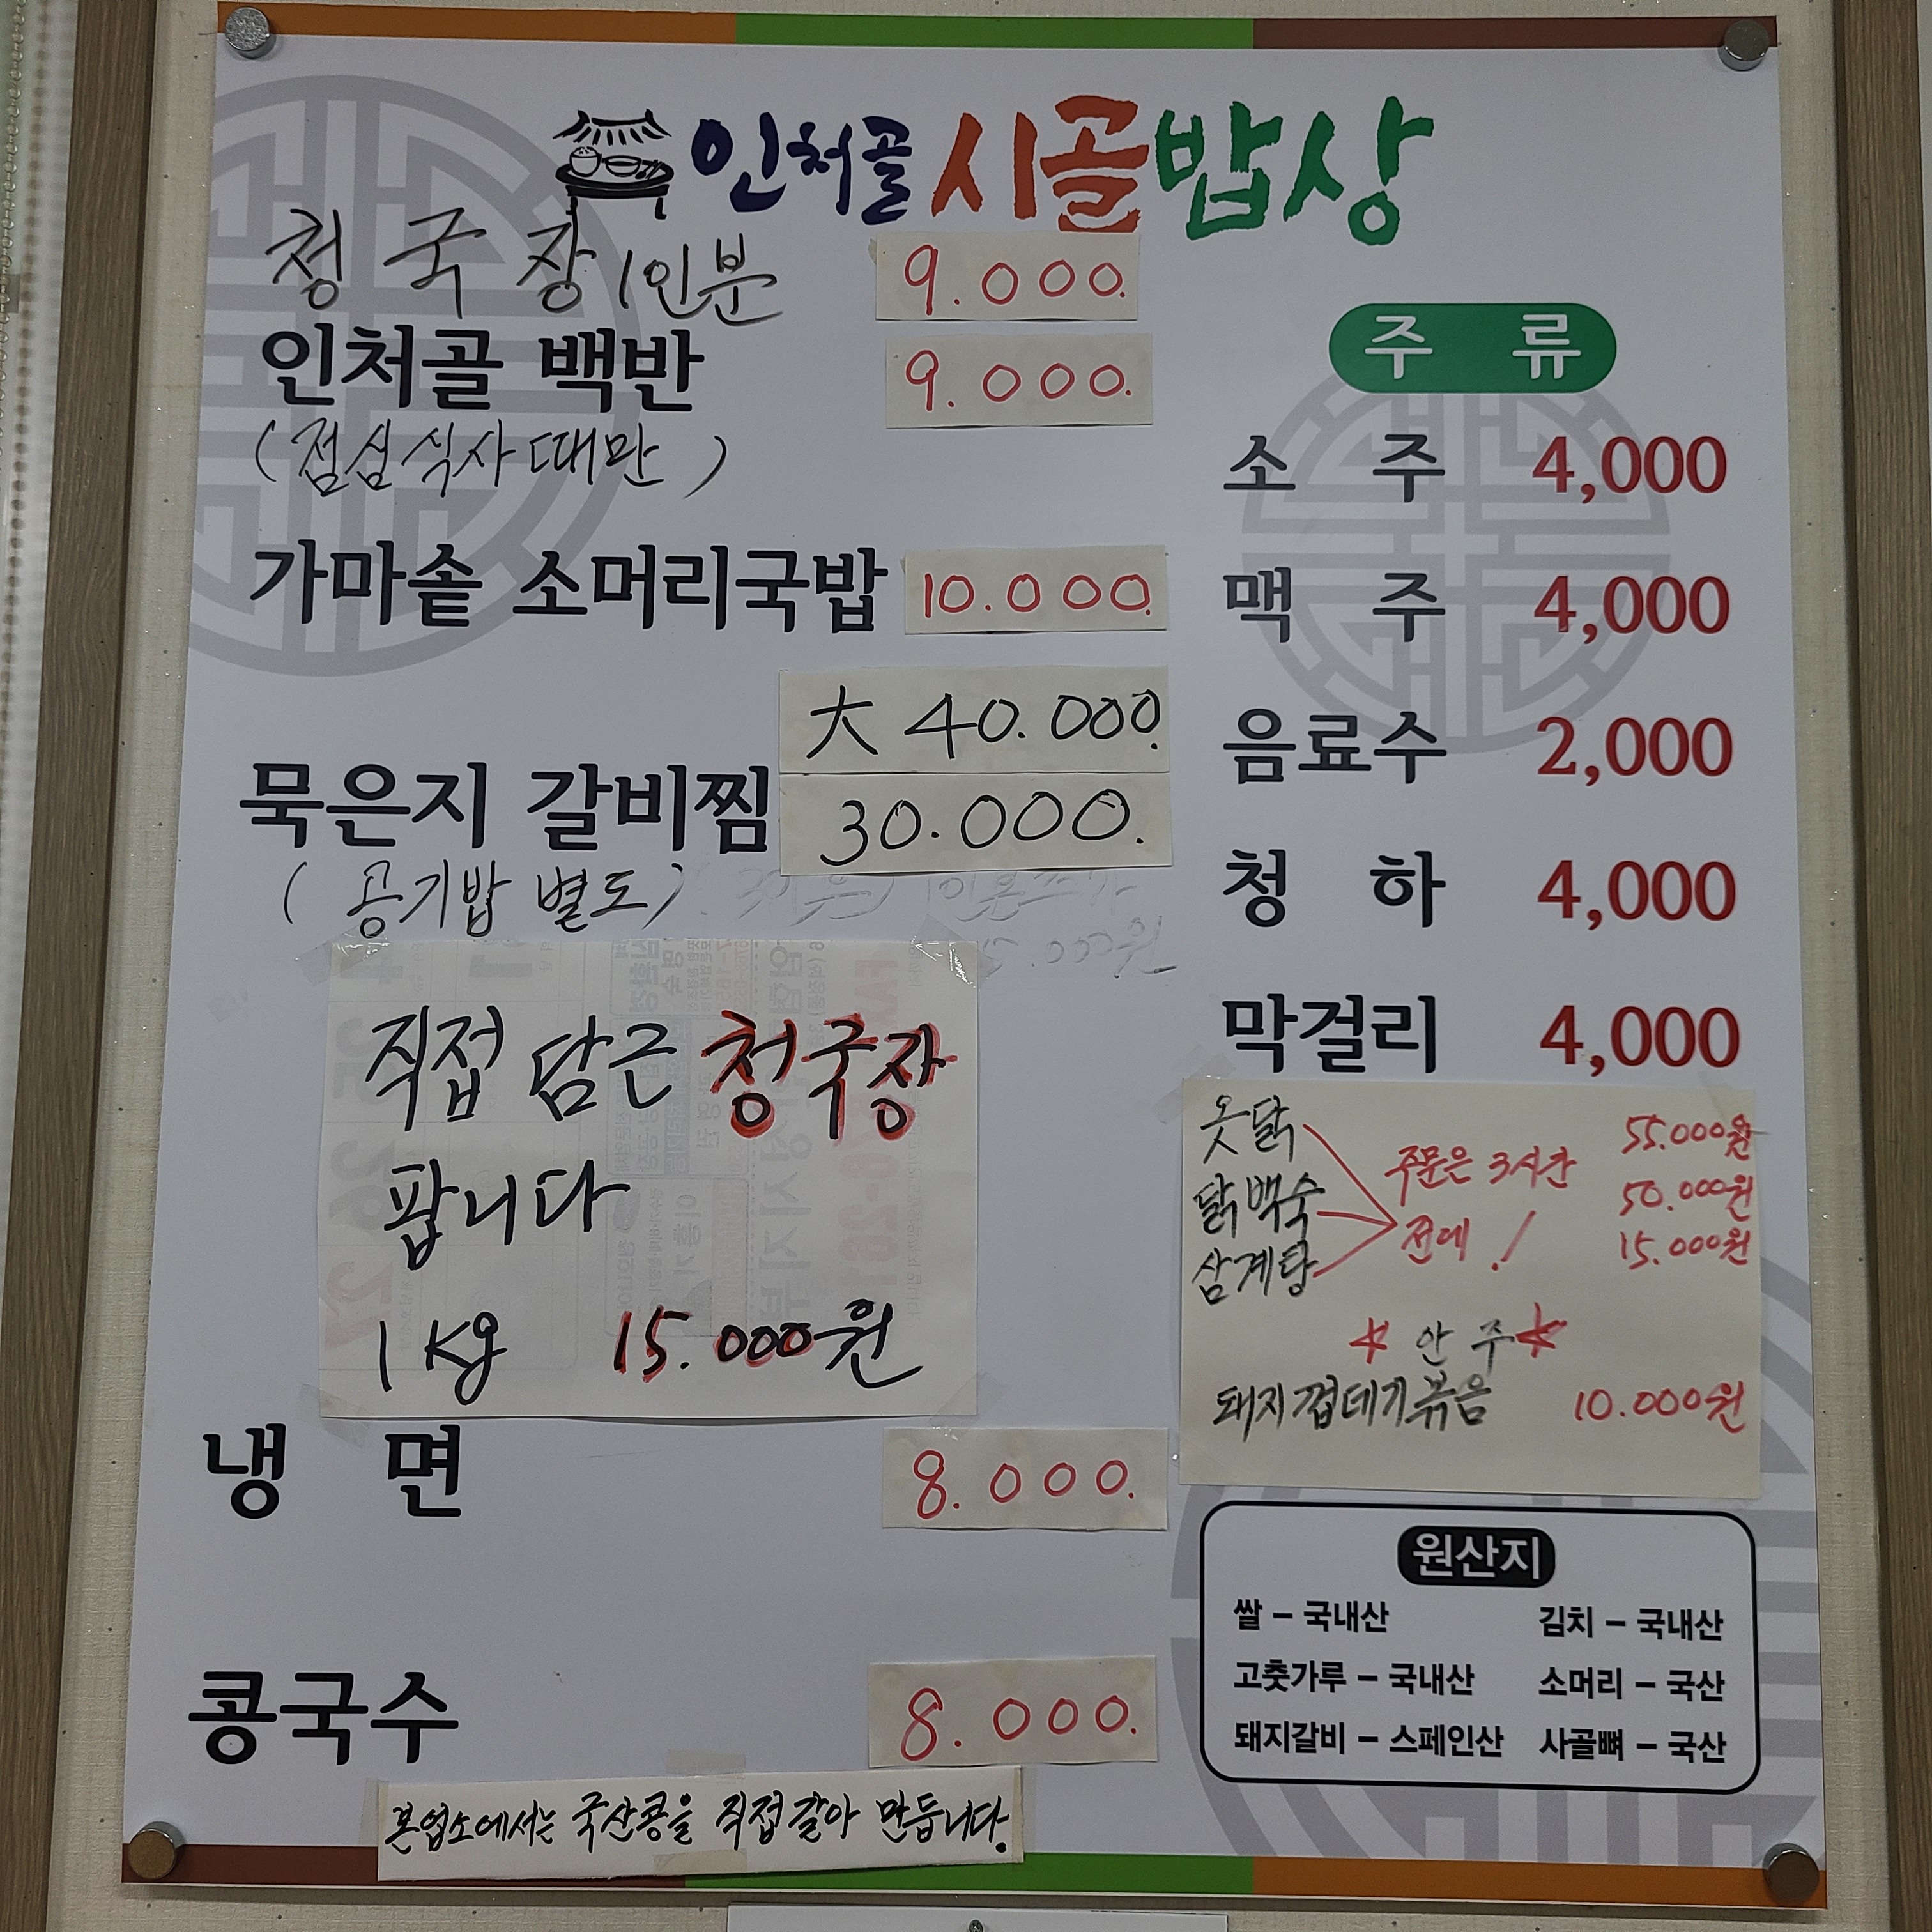 인처골 시골밥상
청국장 1인분 9.000.
인처골 백반 9.000.
(점심식사때만)
가마솥 소머리국밥 10.000.
大 40.000.
묵은지 갈비찜 30.000.
(공기밥 별도)
직접 담근 청국장
팝니다
1Kg 15.000원
냉 면 8.000.
콩국수 8.000.
본 업소에서는 국산콩을 직접 갈아 만듭니다.
주 류
소 주 4,000
맥 주 4,000
음료수 2,000
청 하 4,000
막걸리 4,000
옻닭 55.000원
닭백숙 50.000원
삼계탕 15.000원
주문은 3시간
전에!
안 주
돼지껍데기볶음 10.000원
원산지
쌀 – 국내산 김치 – 국내산
고춧가루 – 국내산 소머리 – 국산
돼지갈비 – 스페인산 사골뼈 – 국산